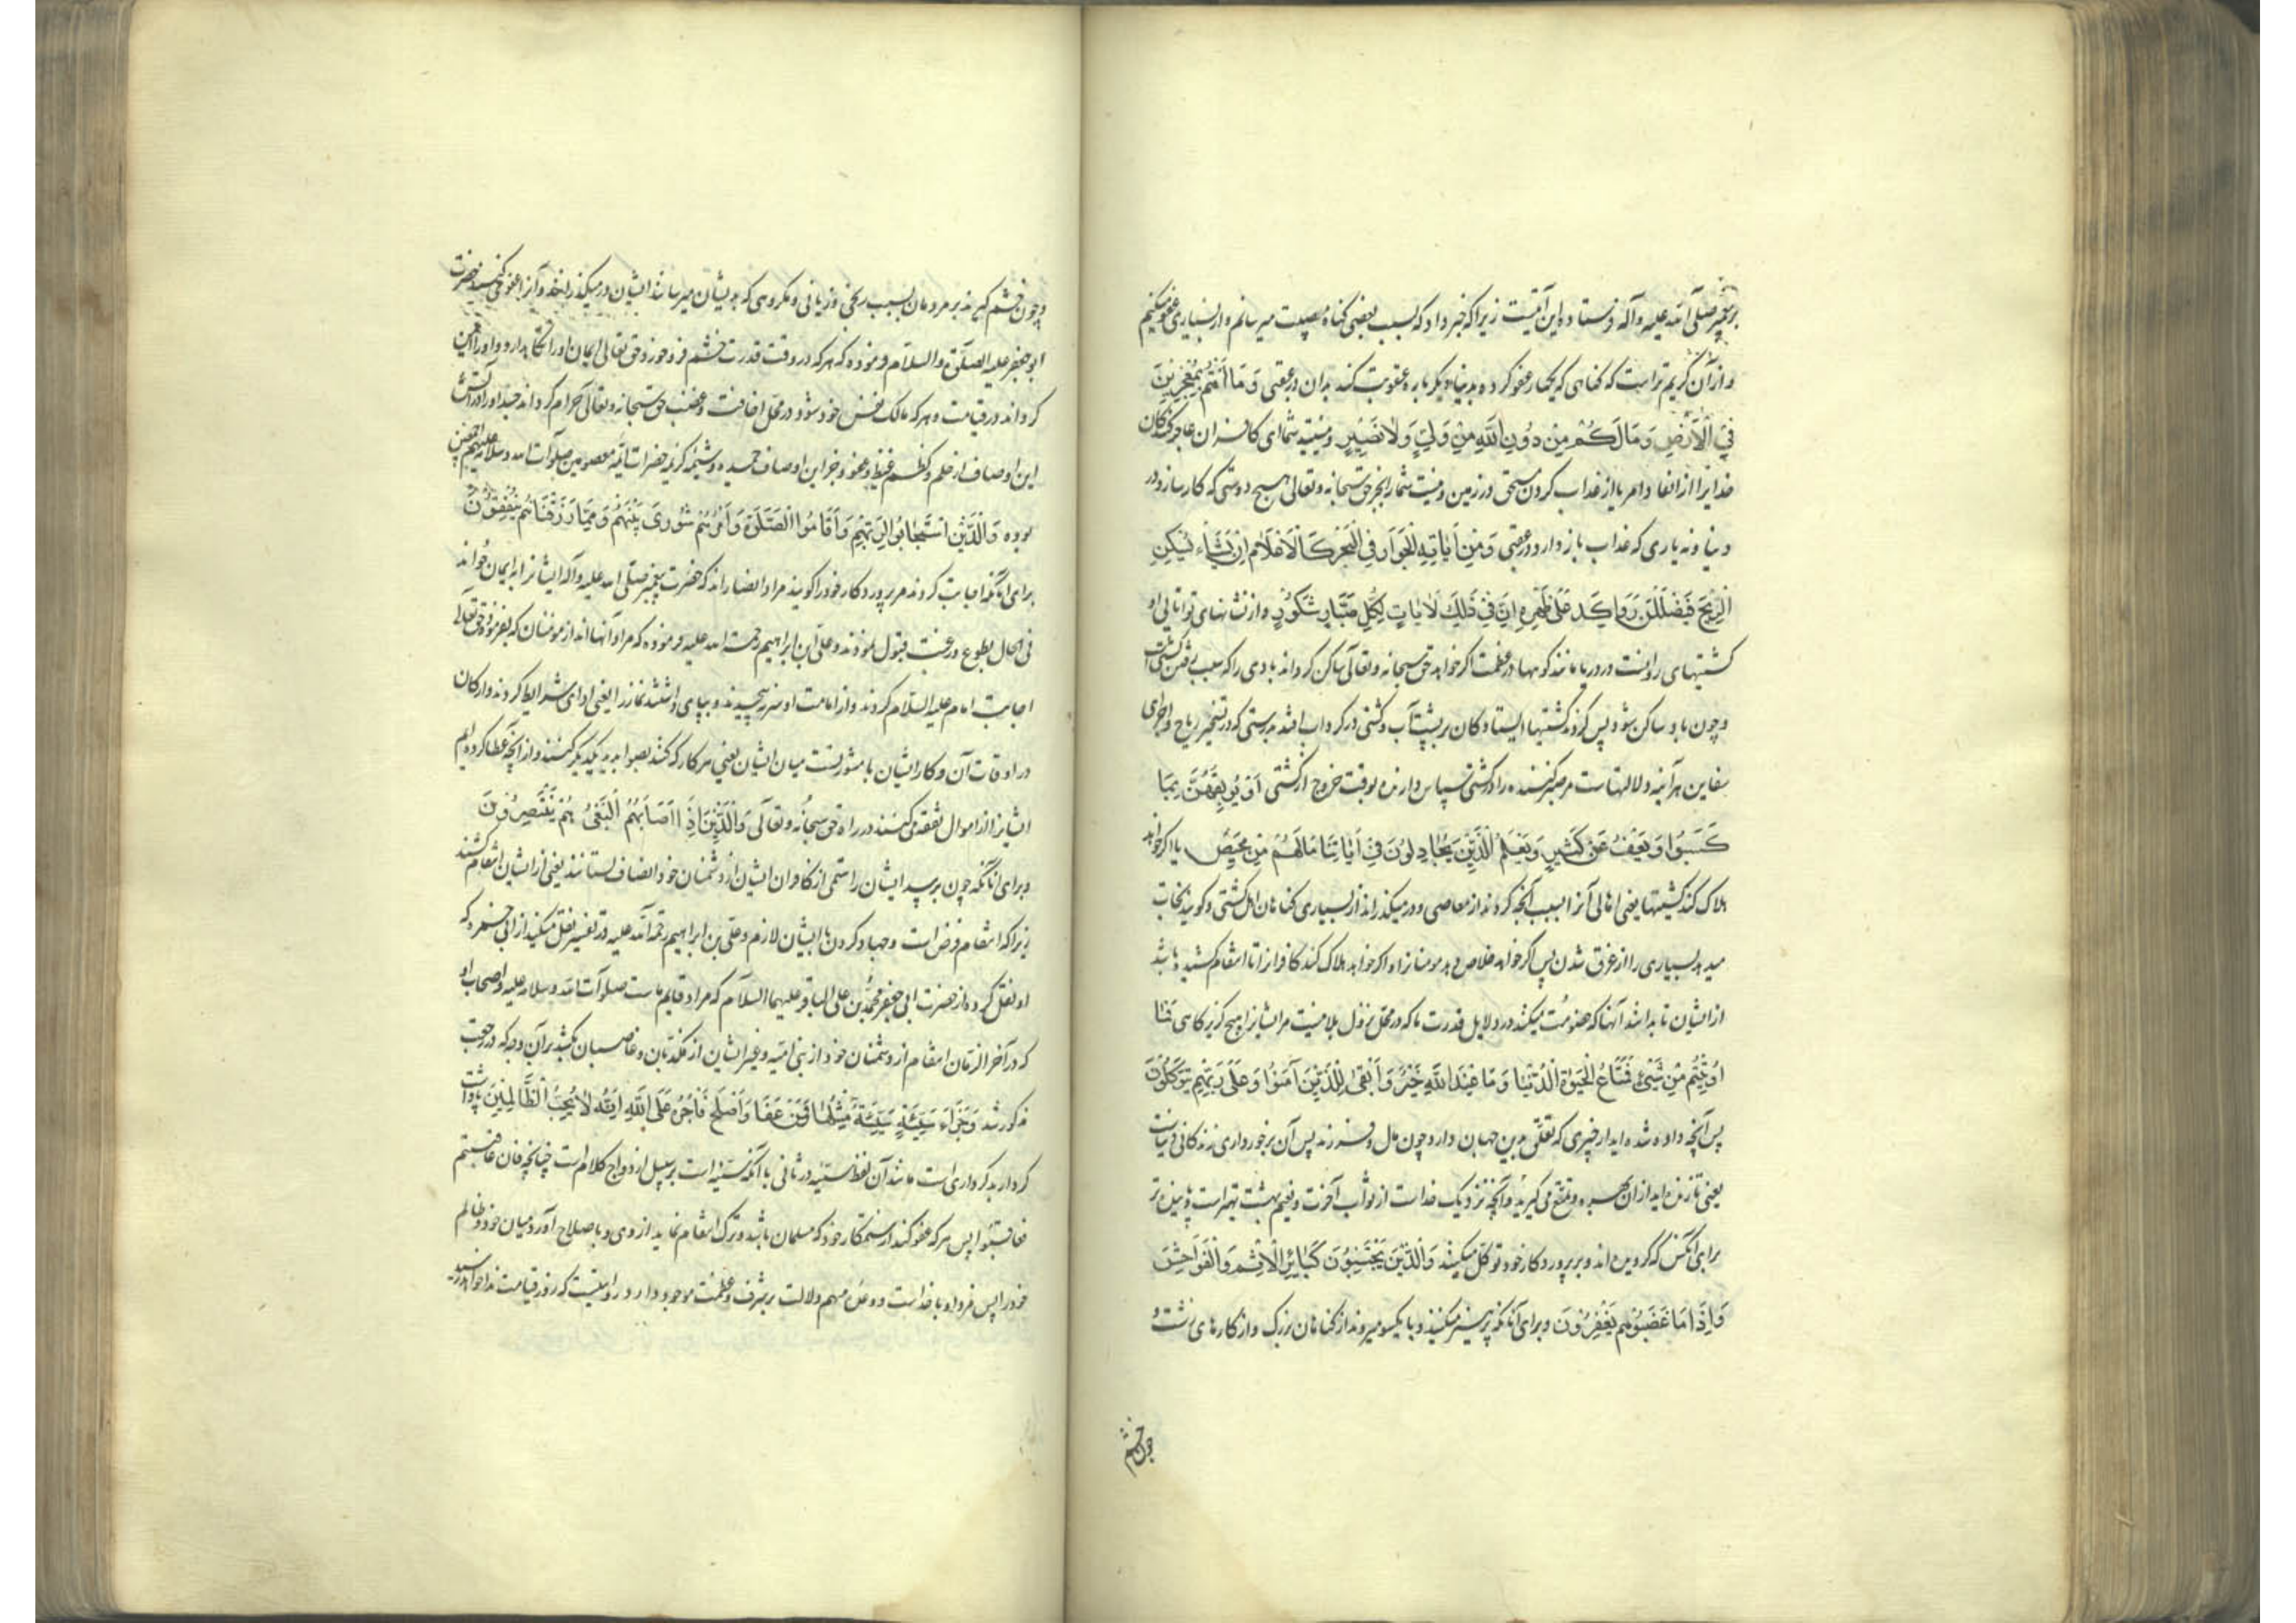 بر پیغمبر صلی الله علیه وآله فرستاده این آیتست زیرا که خبر داد که بسبب بعضی کناه مصیبت میرسانم و از بسیاری عفو میکنیم
و از آن کریم تر است که کناهی که یکبار عفو کرده بدنیا دیکر باره عقوبت کند بدان در عقبی وَمَا اَنْتُمْ بِمُعْجِزِینَ
فِی الْاَرْضِ وَمَا لَکُمْ مِنْ دُونِ اللَّهِ مِنْ وَلِیٍّ وَلَا نَصِیرٍ و نیستید شما ای کافران عاجز کنندکان
خدایرا از انفاد امر یا از عذاب کردن مستحق در زمین و نیست شما را بجز حق سبحانه وتعالی هیچ دوستی که کار سازد در
دنیا و نه یاری که عذاب باز دارد در عقبی وَمِنْ اٰیَاتِهِ الْجَوَارِ فِی الْبَحْرِ کَالْاَعْلَامِ اِنْ یَشَاْء یُسْکِنِ
الرِّیحَ فَیَظْلَلْنَ رَوَاکِدَ عَلٰی ظَهْرِهِ اِنَّ فِی ذٰلِکَ لَاٰیَاتٍ لِکُلِّ صَبَّارٍ شَکُورٍ و از نشانهای توانائی او
کشتیهای روانست در دریا مانند کوهها در عظمت اکر خواهد حق سبحانه وتعالی ساکن کرداند بادی را که سبب رفتن کشتی است
و چون باد ساکن شود پس کردند کشتیها ایستادکان بر پشت آب و کشتی در کرداب افتد بدرستی که در تسخیر ریاح و اجرای
سفاین هر آینه دلالتهاست مر صبر کننده را در کشتی سپاس دارنده بوقت خروج از کشتی اَوْ یُوبِقْهُنَّ بِمَا
کَسَبُوا وَیَعْفُ عَنْ کَثِیرٍ وَیَعْلَمَ الَّذِینَ یُجَادِلُونَ فِی اٰیَاتِنَا مَا لَهُمْ مِنْ مَحِیصٍ یا اکر خواهد
هلاک کند کشتیها یعنی اهالی آنرا بسبب آنچه کرده اند از معاصی و در میکذراند از بسیاری کناهان اهل کشتی و کویند نجات
میدهد بسیاری را از غرق شدن پس اکر خواهد خلاص دهد مومنانرا و اکر خواهد هلاک کند کافرانرا تا انتقام کشیده باشد
از ایشان تا بدانند آنها که خصومت میکنند در دلایل قدرت ما که در محل نزول بلا نیست مر ایشانرا هیچ کریزکاهی فَمَا
اُوتِیتُمْ مِنْ شَیْءٍ فَمَتَاعُ الْحَیٰوةِ الدُّنْیَا وَمَا عِنْدَ اللَّهِ خَیْرٌ وَاَبْقٰی لِلَّذِینَ اٰمَنُوا وَعَلٰی رَبِّهِمْ یَتَوَکَّلُونَ
پس آنچه داده شده اید از چیزی که تعلق بدین جهان دارد چون مال و فرزند پس آن برخورداری زندکانی دنیاست
یعنی تا زنده اید از ان بهره و تمتع می کیرید و آنچه نزدیک خداست از ثواب آخرت و نعیم بهشت بهتر است و پاینده تر
برای آنکس که کرویده اند و بر پروردکار خود توکل میکنند وَالَّذِینَ یَجْتَنِبُونَ کَبَائِرَ الْاِثْمِ وَالْفَوَاحِشَ
وَاِذَا مَا غَضِبُوا هُمْ یَغْفِرُونَ و برای آنانکه پرهیز میکنند و بایکسو میروند از کناهان بزرک و از کارهای زشت
چون خشم
و چون خشم کیرند بر مردمان بسبب رنجی و زیانی و مکروهی که بدیشان میرسانند ایشان در میکذرانند و آنرا عفو می کنند حضرت
ابو جعفر علیه الصلوة والسلام فرموده که هر که در وقت قدرت خشم فرو خورد حق تعالی ایمان او را نکاهدارد و او را ایمن
کرداند در قیامت و هر که مالک نفس خود شود در محل اخافت و غضب حق سبحانه وتعالی حرام کرداند جسد او را در آتش
این اوصاف از حلم و کظم غیظ و عفو و جز این اوصاف حمیده و شیمه کریمه حضرات ائمه معصومین صلوات الله وسلامه علیهم اجمعین
بوده وَالَّذِینَ اسْتَجَابُوا لِرَبِّهِمْ وَاَقَامُوا الصَّلٰوةَ وَاَمْرُهُمْ شُورٰی بَیْنَهُمْ وَمِمَّا رَزَقْنَاهُمْ یُنْفِقُونَ
برای آنانکه اجابت کردند مر پروردکار خود را کویند مراد انصار اند که حضرت پیغمبر صلی الله علیه وآله ایشانرا به ایمان خواند
فی الحال بطوع و رغبت قبول نمودند و علی ابن ابراهیم رحمة الله علیه فرموده که مراد آنها اند از مومنان که بفرموده حق تعالی
اجابت امام علیه السلام کردند و از امامت او سر نه پیچیدند و بپای داشتند نماز را یعنی ادای شرایط کردند و ارکان
در اوقات آن و کار ایشان با مشورتست میان ایشان یعنی هر کار که کنند بصوابدید یکدیکر کنند و از آنچه عطا کرده ایم
ایشانرا از اموال نفقه می کنند در راه حق سبحانه وتعالی وَالَّذِینَ اِذَا اَصَابَهُمُ الْبَغْیُ هُمْ یَنْتَصِرُونَ
و برای آنانکه چون برسد ایشان را ستمی از کافران ایشان از دشمنان خود انصاف بستانند یعنی از ایشان انتقام کشند
زیرا که انتقام فرض است و جهاد کردن با ایشان لازم و علی بن ابراهیم رحمة الله علیه در تفسیر نقل میکند از ابی حمزه که
او نقل کرده از حضرت ابی جعفر محمد بن علی الباقر علیهما السلام که مراد قایم ماست صلوات الله وسلامه علیه و اصحاب او
که در آخر الزمان انتقام از دشمنان خود از بنی امیه و غیر ایشان از مکذبان و غاصبان بکشند بر آن وجه که در رجعت
مذکور شد وَجَزَاءُ سَیِّئَةٍ سَیِّئَةٌ مِثْلُهَا فَمَنْ عَفَا وَاَصْلَحَ فَاَجْرُهُ عَلَی اللَّهِ اِنَّهُ لَا یُحِبُّ الظَّالِمِینَ پاداشت
کردار بد کرداری است مانند آن لفظ سیئه در ثانی با آنکه نه سیئه است بر سبیل ازدواج کلام است چنانچه فان عاقبتم
فعاقبوا پس هر که عفو کند از ستمکار خود که مسلمان باشد و ترک انتقام نماید از وی و باصلاح آورد میان خود و ظالم
خود را پس مزد او با خداست و وعدهٔ مبهم دلالت بر شرف و عظمت موعود دارد در روایتست که روز قیامت ندا خواهد رسید